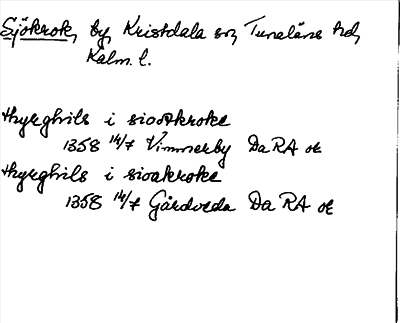 Sjökrok, by, Kristdala sn, Tunaläns hd,
Kalm. l.
thyrghils i siostkroke
1358 14/7 Vimmerby DaRA or
thyrghils i sioakroke
1358 14/7 Gårdveda DaRA or